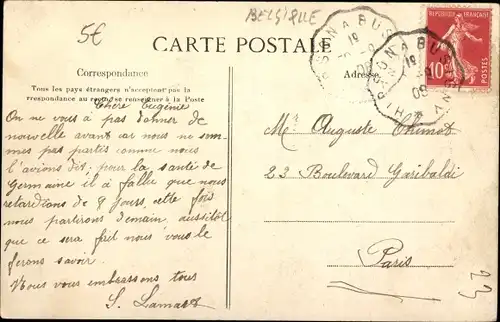 5€
BELGIQUE
CARTE POSTALE
Correspondance
Tous les pays étrangers n'acceptent pas la
correspondance au recto, se renseigner à la Poste
Adresse
10c
POSTES
09
Chère Eugénie
On ne vous à pas donner de
nouvelle avant car nous ne som-
mes pas partis comme nous
l'avions dit. pour la santé de
Germaine il à fallu que nous
retardions de 8 jours, cette fois
nous partirons demain, aussitôt
que ce sera fait nous vous le
ferons savoir.
Nous vous embrassons tous
Mr Auguste
23 Boulevard Garibaldi
Paris